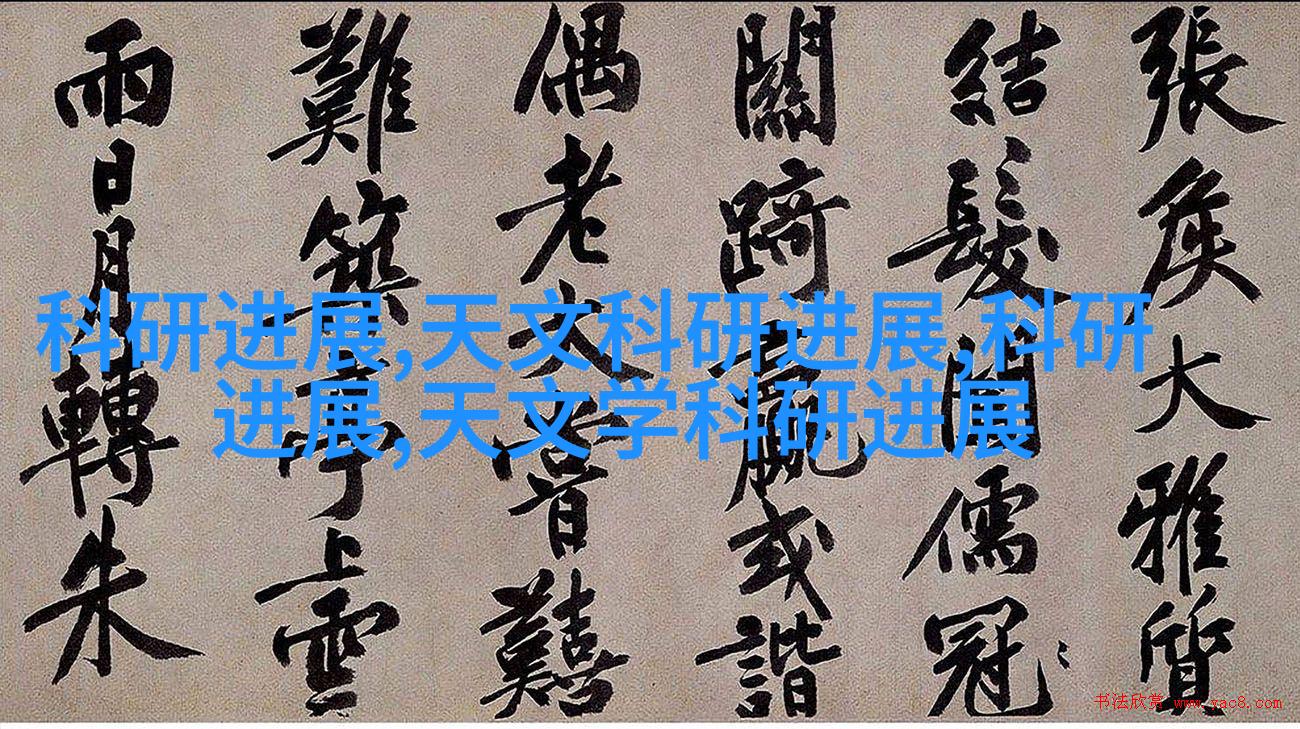 張侯大雅質
結髮閑儒冠
關踦贏或諧
偶老大昔囏
難築亭上雲
雨日月轉朱
科研进展,天文科研进展,科研
进展,天文学科研进展
书法欣赏 www.yac8.com